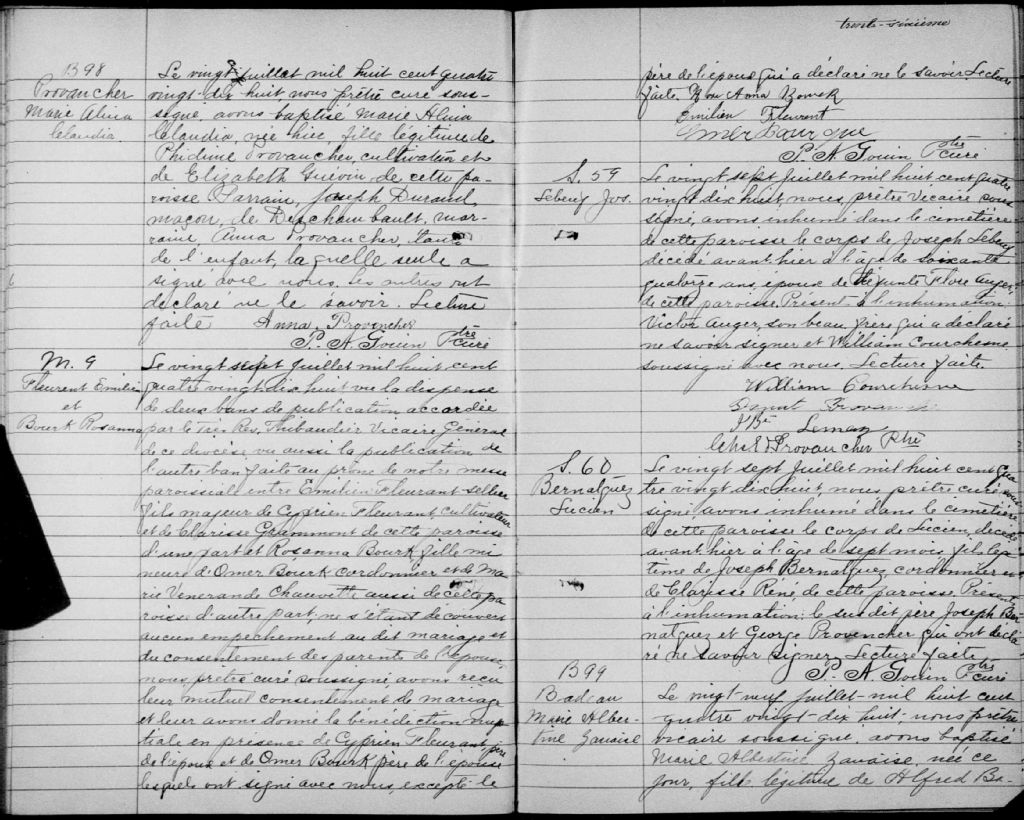 B98
Provancher
Marie Alina
Claudia
Le vingt juillet mil huit cent quatre
vingt-dix huit, nous prêtre curé sous-
signé, avons baptisé Marie Alina
Claudia, née hier, fille légitime de
Phidime Provancher, cultivateur et
de Elizabeth Guévin de cette pa-
roisse Parrain, Joseph Durand,
maçon, de Deschambault, mar-
raine, Anna Provancher, tante
de l'enfant, laquelle seule a
signé avec nous. Les autres ont
déclaré ne le savoir. Lecture
faite Anna Provencher
P. A. Gouin Ptre curé
M. 9
Fleurent Emilien
et
Bourk Rosanna
Le vingt sept Juillet mil huit cent
quatre vingt dix huit vu la dispense
de deux bans de publication accordée
par le Très Rev. Thibaudier Vicaire Général
de ce diocèse vu aussi la publication de
l'autre ban faite au prône de notre messe
paroissiale entre Emilien Fleurant sellier
fils majeur de Cyprien Fleurant cultivateur
et de Clarisse Grammont de cette paroisse
d'une part et Rosanna Bourk fille mi
neure d'Omer Bourk cordonnier et de Ma
rie Vénérande Chauvette aussi de cette pa
roisse d'autre part, ne s'étant découvert
aucun empechement au dit mariage et
du consentement des parents de l'épouse,
nous prêtre curé soussigné avons reçu
leur mutuel consentement de mariage
et leur avons donné la bénédiction nup
tiale en présence de Cyprien Fleurant père
de l'époux et de Omer Bourk père de l'épouse
lesquels ont signé avec nous, excepté le
trente-sixième
père de l'époux qui a déclaré ne le savoir Lecture
faite.
Emilien Fleurent
Omer Bourque
P. A. Gouin Ptre curé
S. 59
Lebeuf Jos.
Le vingt sept Juillet mil huit cent quatre
vingt dix huit nous, prêtre Vicaire sous
signé, avons inhumé dans le cimetière
de cette paroisse le corps de Joseph Lebeuf
décédé avant hier à l'âge de soixante
quatorze ans, époux de défunte Flore Auger,
de cette paroisse. Présents à l'inhumation:
Victor Auger, son beau frère qui a déclaré
ne savoir signer et William Courchesne
soussigné avec nous. Lecture faite.
William Courchesne
Lemay
Provancher Ptre
S. 60
Bernatguez
Lucien
Le vingt sept Juillet mil huit cent qua
tre vingt dix huit, nous prêtre curé sous
signé avons inhumé dans le cimetière
de cette paroisse le corps de Lucien, décédé
avant hier à l'âge de sept mois, fils légi
time de Joseph Bernatguez, cordonnier et
de Clarisse René, de cette paroisse. Présents
à l'inhumation: le susdit père Joseph Ber
natguez et George Provencher qui ont décla
ré ne savoir signer. Lecture faite
P. A. Gouin Ptre curé
B99
Badeau
Marie Alber-
tine Zanaise
Le vingt-neuf juillet mil huit cent
quatre vingt-dix huit; nous prêtre
vicaire soussigné, avons baptisé
Marie Albertine Zanaise, née ce
jour, fille légitime de Alfred Ba-